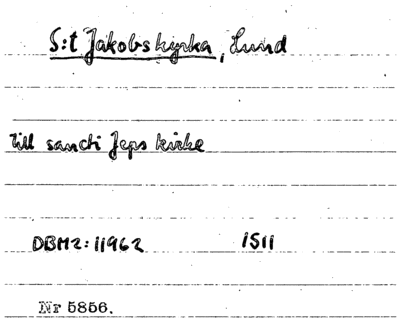 S:t Jakobs kyrka, Lund
till sancti Jeps kirke
DBM2:11962 1511
Nr 5856.